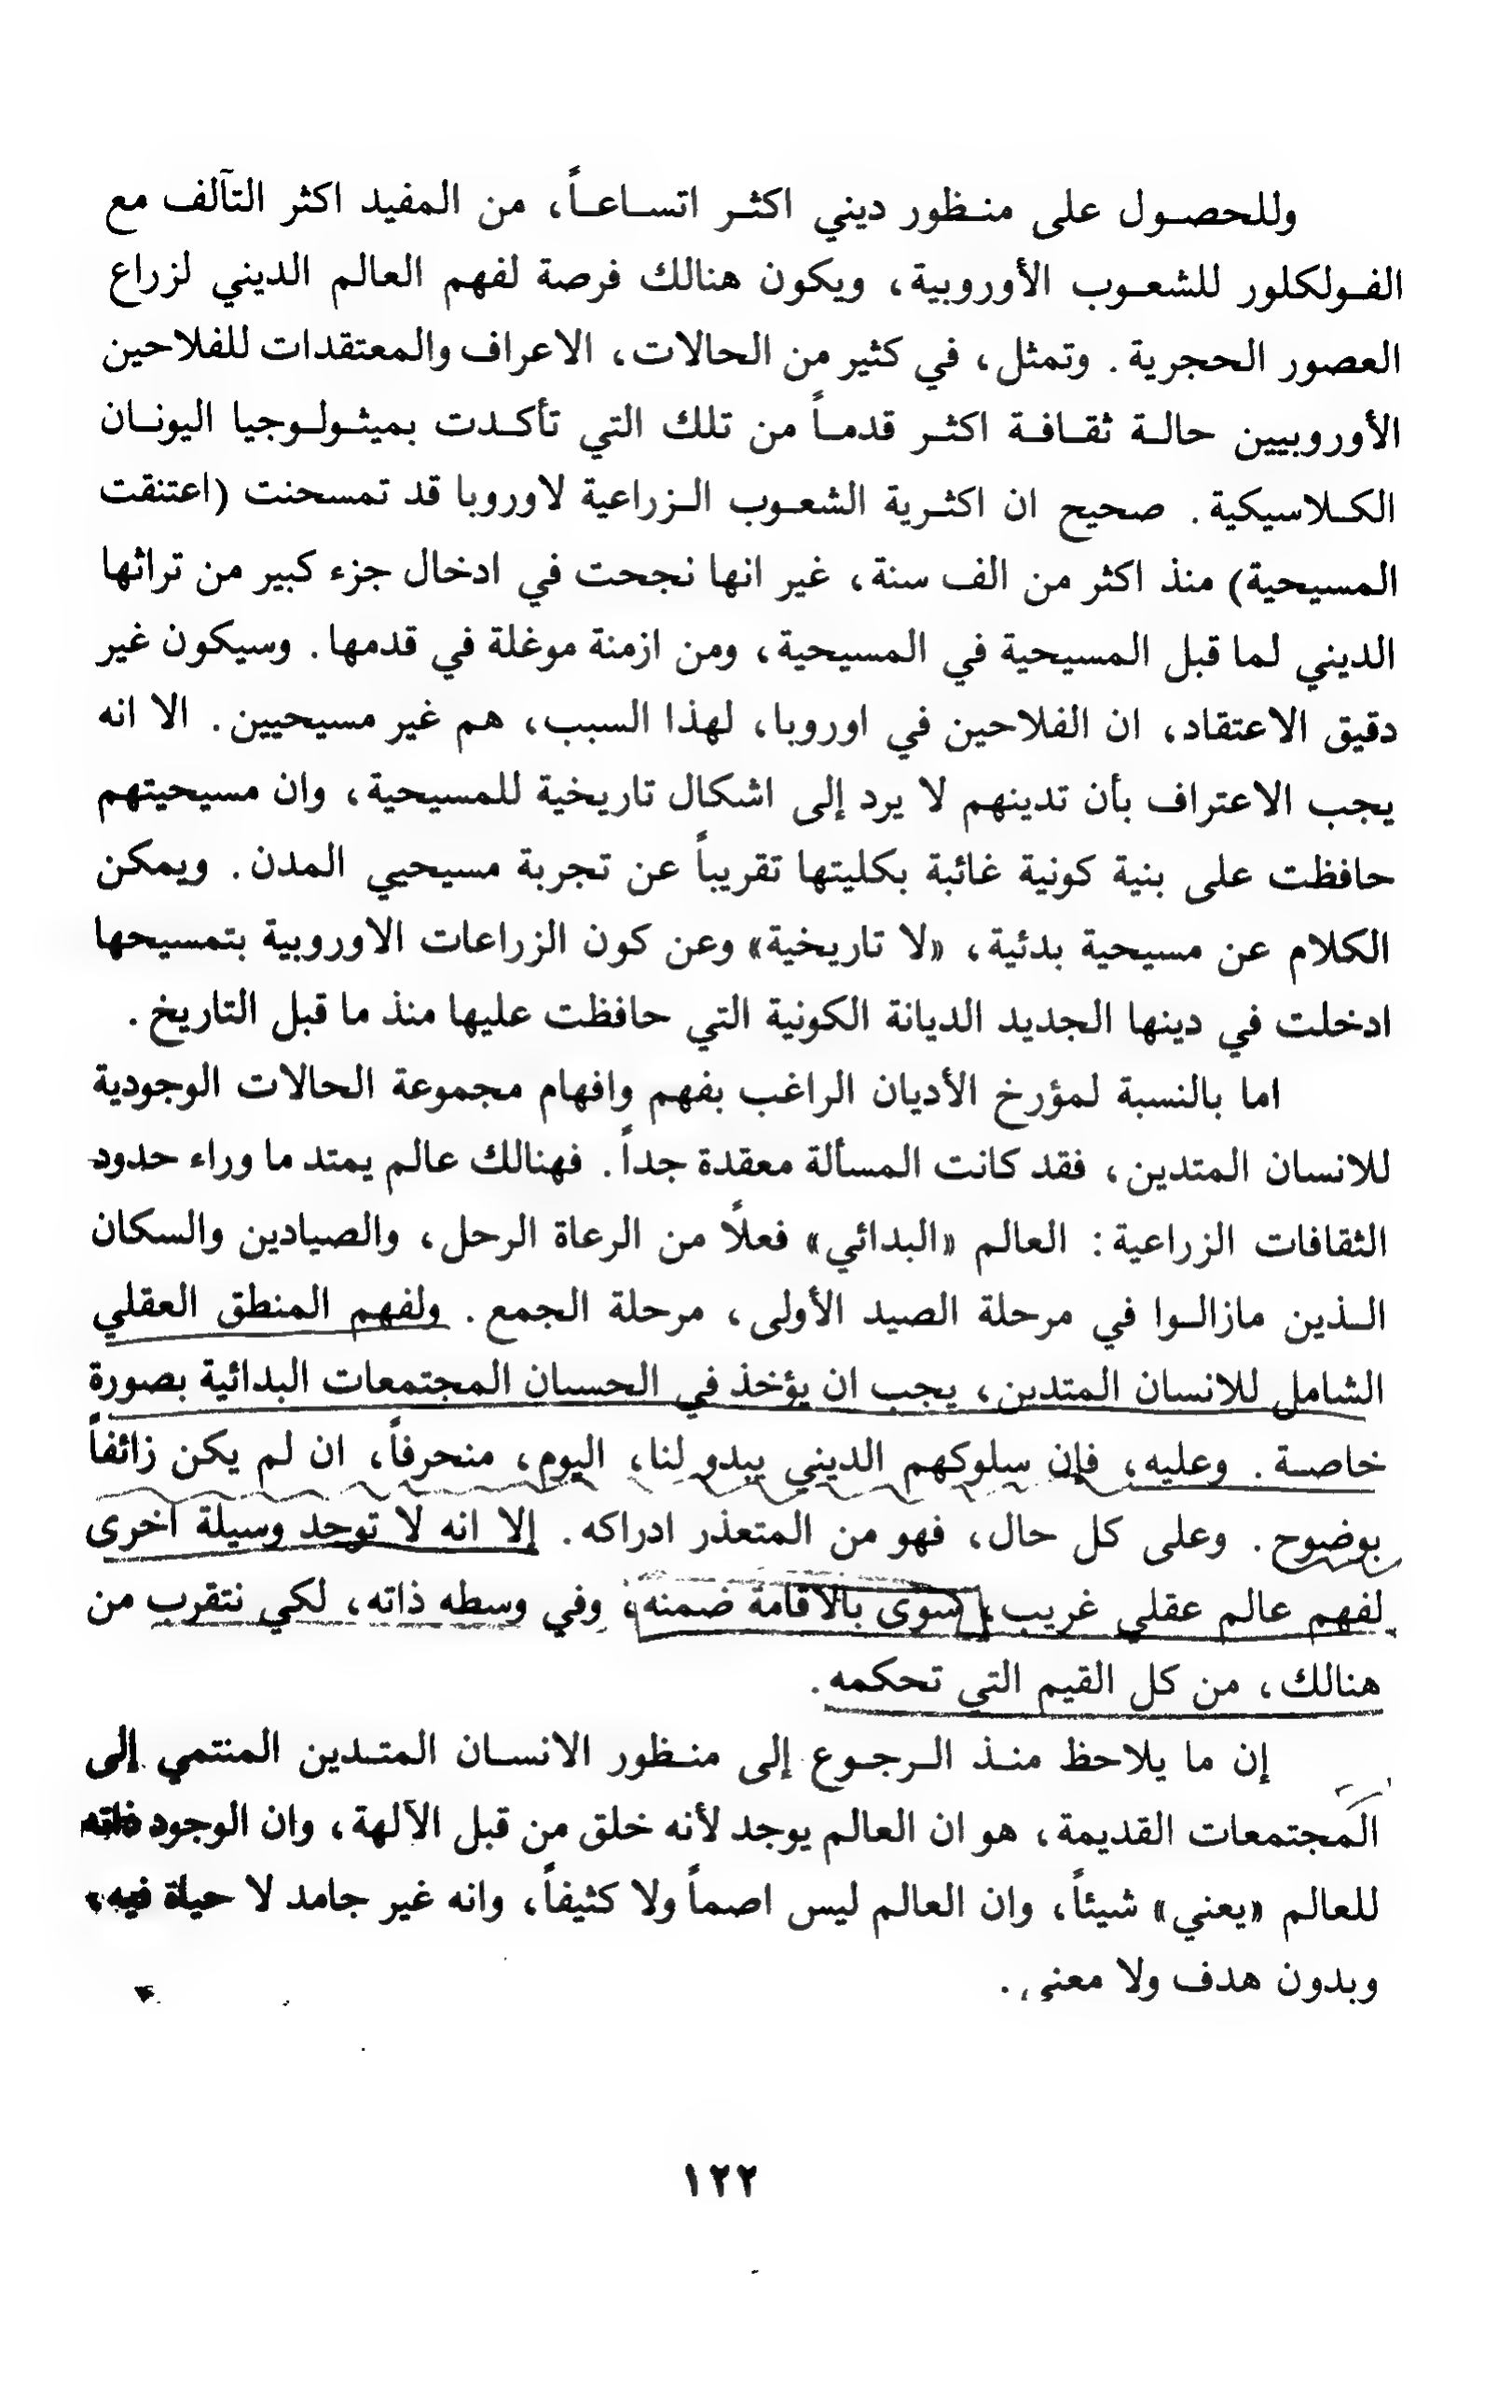 وللحصول على منظور ديني اكثر اتساعاً، من المفيد اكثر التآلف مع
الفولكلور للشعوب الأوروبية، ويكون هنالك فرصة لفهم العالم الديني لزراع
العصور الحجرية. وتمثل، في كثير من الحالات، الاعراف والمعتقدات للفلاحين
الأوروبيين حالة ثقافة اكثر قدماً من تلك التي تأكدت بميثولوجيا اليونان
الكلاسيكية. صحيح ان اكثرية الشعوب الزراعية لاوروبا قد تمسحنت (اعتنقت
المسيحية) منذ اكثر من الف سنة، غير انها نجحت في ادخال جزء كبير من تراثها
الديني لما قبل المسيحية في المسيحية، ومن ازمنة موغلة في قدمها. وسيكون غير
دقيق الاعتقاد، ان الفلاحين في اوروبا، لهذا السبب، هم غير مسيحيين. الا انه
يجب الاعتراف بأن تدينهم لا يرد إلى اشكال تاريخية للمسيحية، وان مسيحيتهم
حافظت على بنية كونية غائبة بكليتها تقريباً عن تجربة مسيحيي المدن. ويمكن
الكلام عن مسيحية بدئية، «لا تاريخية» وعن كون الزراعات الاوروبية بتمسيحها
ادخلت في دينها الجديد الديانة الكونية التي حافظت عليها منذ ما قبل التاريخ.
اما بالنسبة لمؤرخ الأديان الراغب بفهم وافهام مجموعة الحالات الوجودية
للانسان المتدين، فقد كانت المسألة معقدة جداً. فهنالك عالم يمتد ما وراء حدود
الثقافات الزراعية: العالم «البدائي» فعلًا من الرعاة الرحل، والصيادين والسكان
الذين مازالوا في مرحلة الصيد الأولى، مرحلة الجمع. ولفهم المنطق العقلي
الشامل للانسان المتدين، يجب ان يؤخذ في الحسبان المجتمعات البدائية بصورة
خاصة. وعليه، فإن سلوكهم الديني يبدو لنا، اليوم، منحرفاً، ان لم يكن زائفاً
بوضوح. وعلى كل حال، فهو من المتعذر ادراكه. إلا انه لا توجد وسيلة اخرى
لفهم عالم عقلي غريب، سوى بالاقامة ضمنه، وفي وسطه ذاته، لكي نتقرب من
هنالك، من كل القيم التي تحكمه.
إن ما يلاحظ منذ الرجوع إلى منظور الانسان المتدين المنتمي إلى
المجتمعات القديمة، هو ان العالم يوجد لأنه خلق من قبل الآلهة، وان الوجود ذاته
للعالم «يعني» شيئاً، وان العالم ليس اصماً ولا كثيفاً، وانه غير جامد لا حياة فيه،
وبدون هدف ولا معنى.
١٢٢